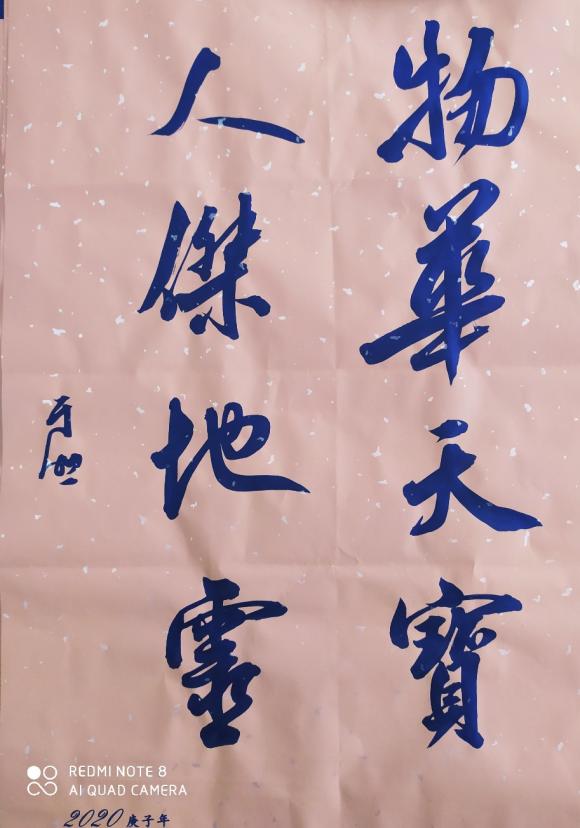 物華天寶
人傑地靈
REDMI NOTE 8
AI QUAD CAMERA
2020 庚子年